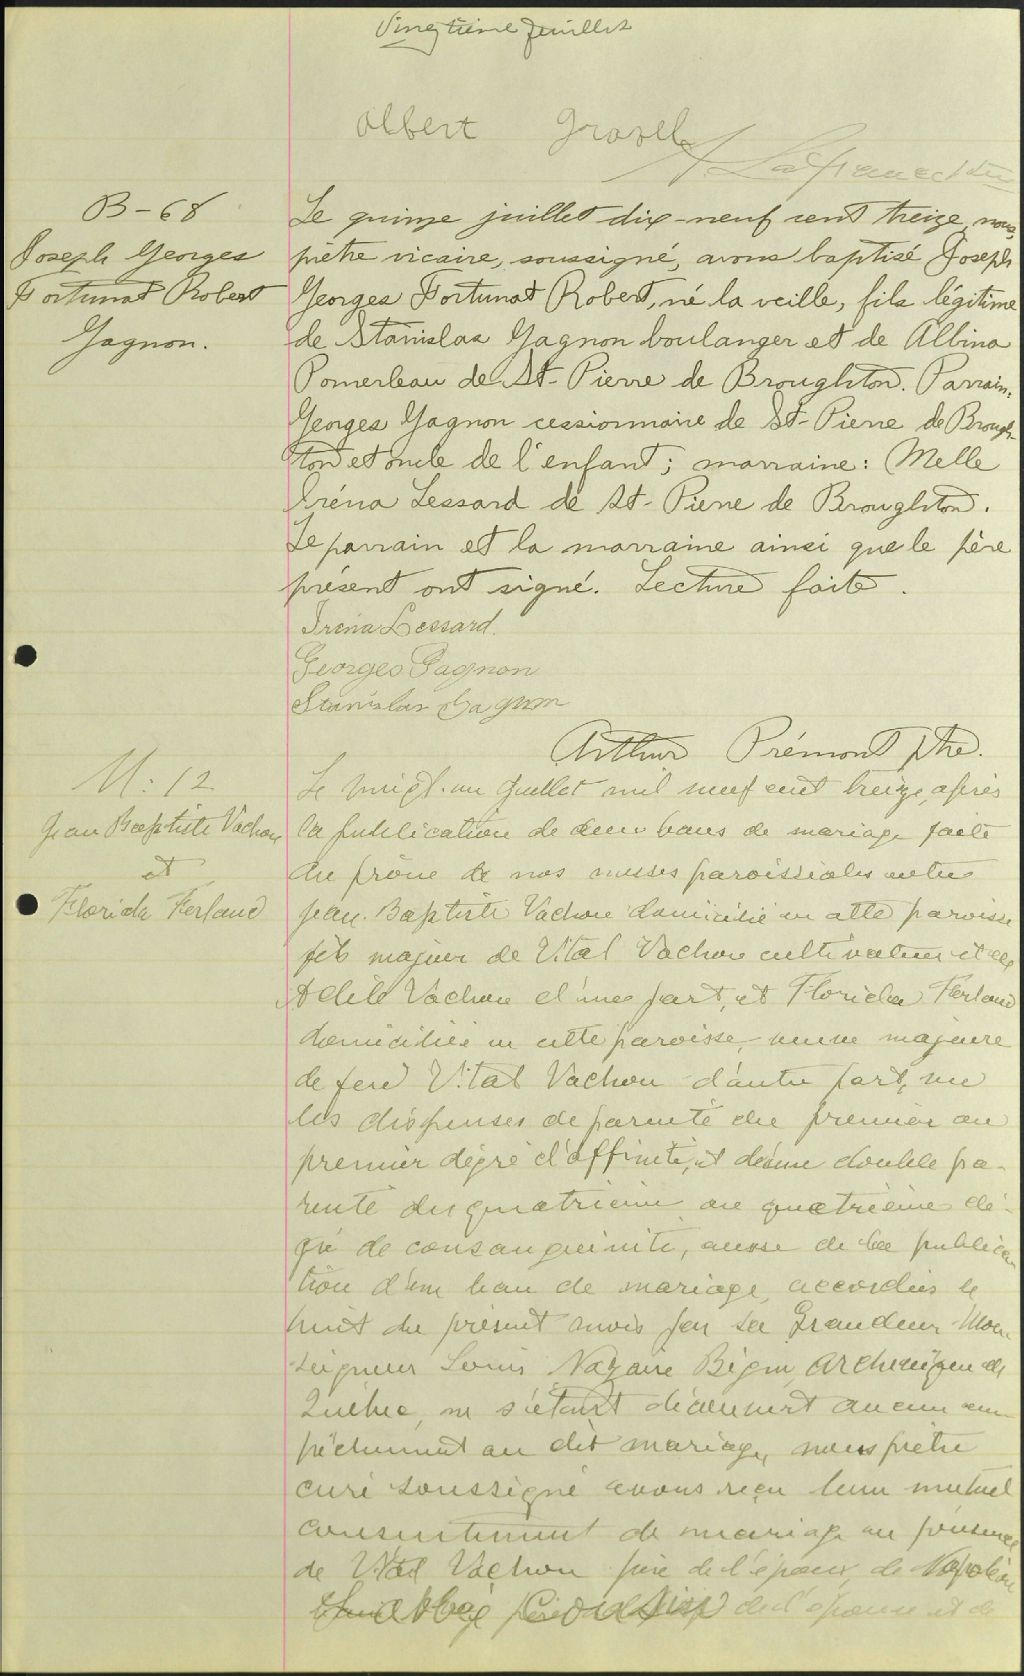 Vingtième Juillet
Albert Gravel
B-68
Joseph Georges
Fortunat Robert
Gagnon.
Le quinze juillet dix-neuf cent treize, nous,
prêtre vicaire, soussigné, avons baptisé Joseph
Georges Fortunat Robert, né la veille, fils légitime
de Stanislas Gagnon boulanger et de Albina
Pomerleau de St-Pierre de Broughton. Parrain:
Georges Gagnon cessionnaire de St-Pierre de Brough-
ton et oncle de l'enfant; marraine: Melle
Iréna Lessard de St-Pierre de Broughton.
Le parrain et la marraine ainsi que le père
présent ont signé. Lecture faite.
Irena Lessard.
Georges Gagnon
Stanislas Gagnon
Arthur Prémont ptre.
M: 12
Jean Baptiste Vachon
et
Florida Ferland
Le vingt-un Juillet mil neuf cent treize, après
la publication de deux bans de mariage faite
au prône de nos messes paroissiales entre
Jean-Baptiste Vachon domicilié en cette paroisse
fils majeur de Vital Vachon cultivateur et de
Adèle Vachon d'une part, et Florida Ferland
domiciliée en cette paroisse, veuve majeure
de feu Vital Vachon d'autre part, vu
les dispenses de parenté du premier au
premier dégré d'affinité, et d'une double pa-
renté du quatrième au quatrième dé-
gré de consanguinité, aussi de la publica-
tion d'un ban de mariage, accordées le
huit du présent mois par Sa Grandeur Mon-
seigneur Louis Nazaire Bégin, Archevêque de
Québec, ne s'étant découvert aucun em-
pêchement au dit mariage, nous prêtre
curé soussigné avons reçu leur mutuel
consentement de mariage en présence
de Vital Vachon père de l'époux, de Napoléon
de l'épouse et de